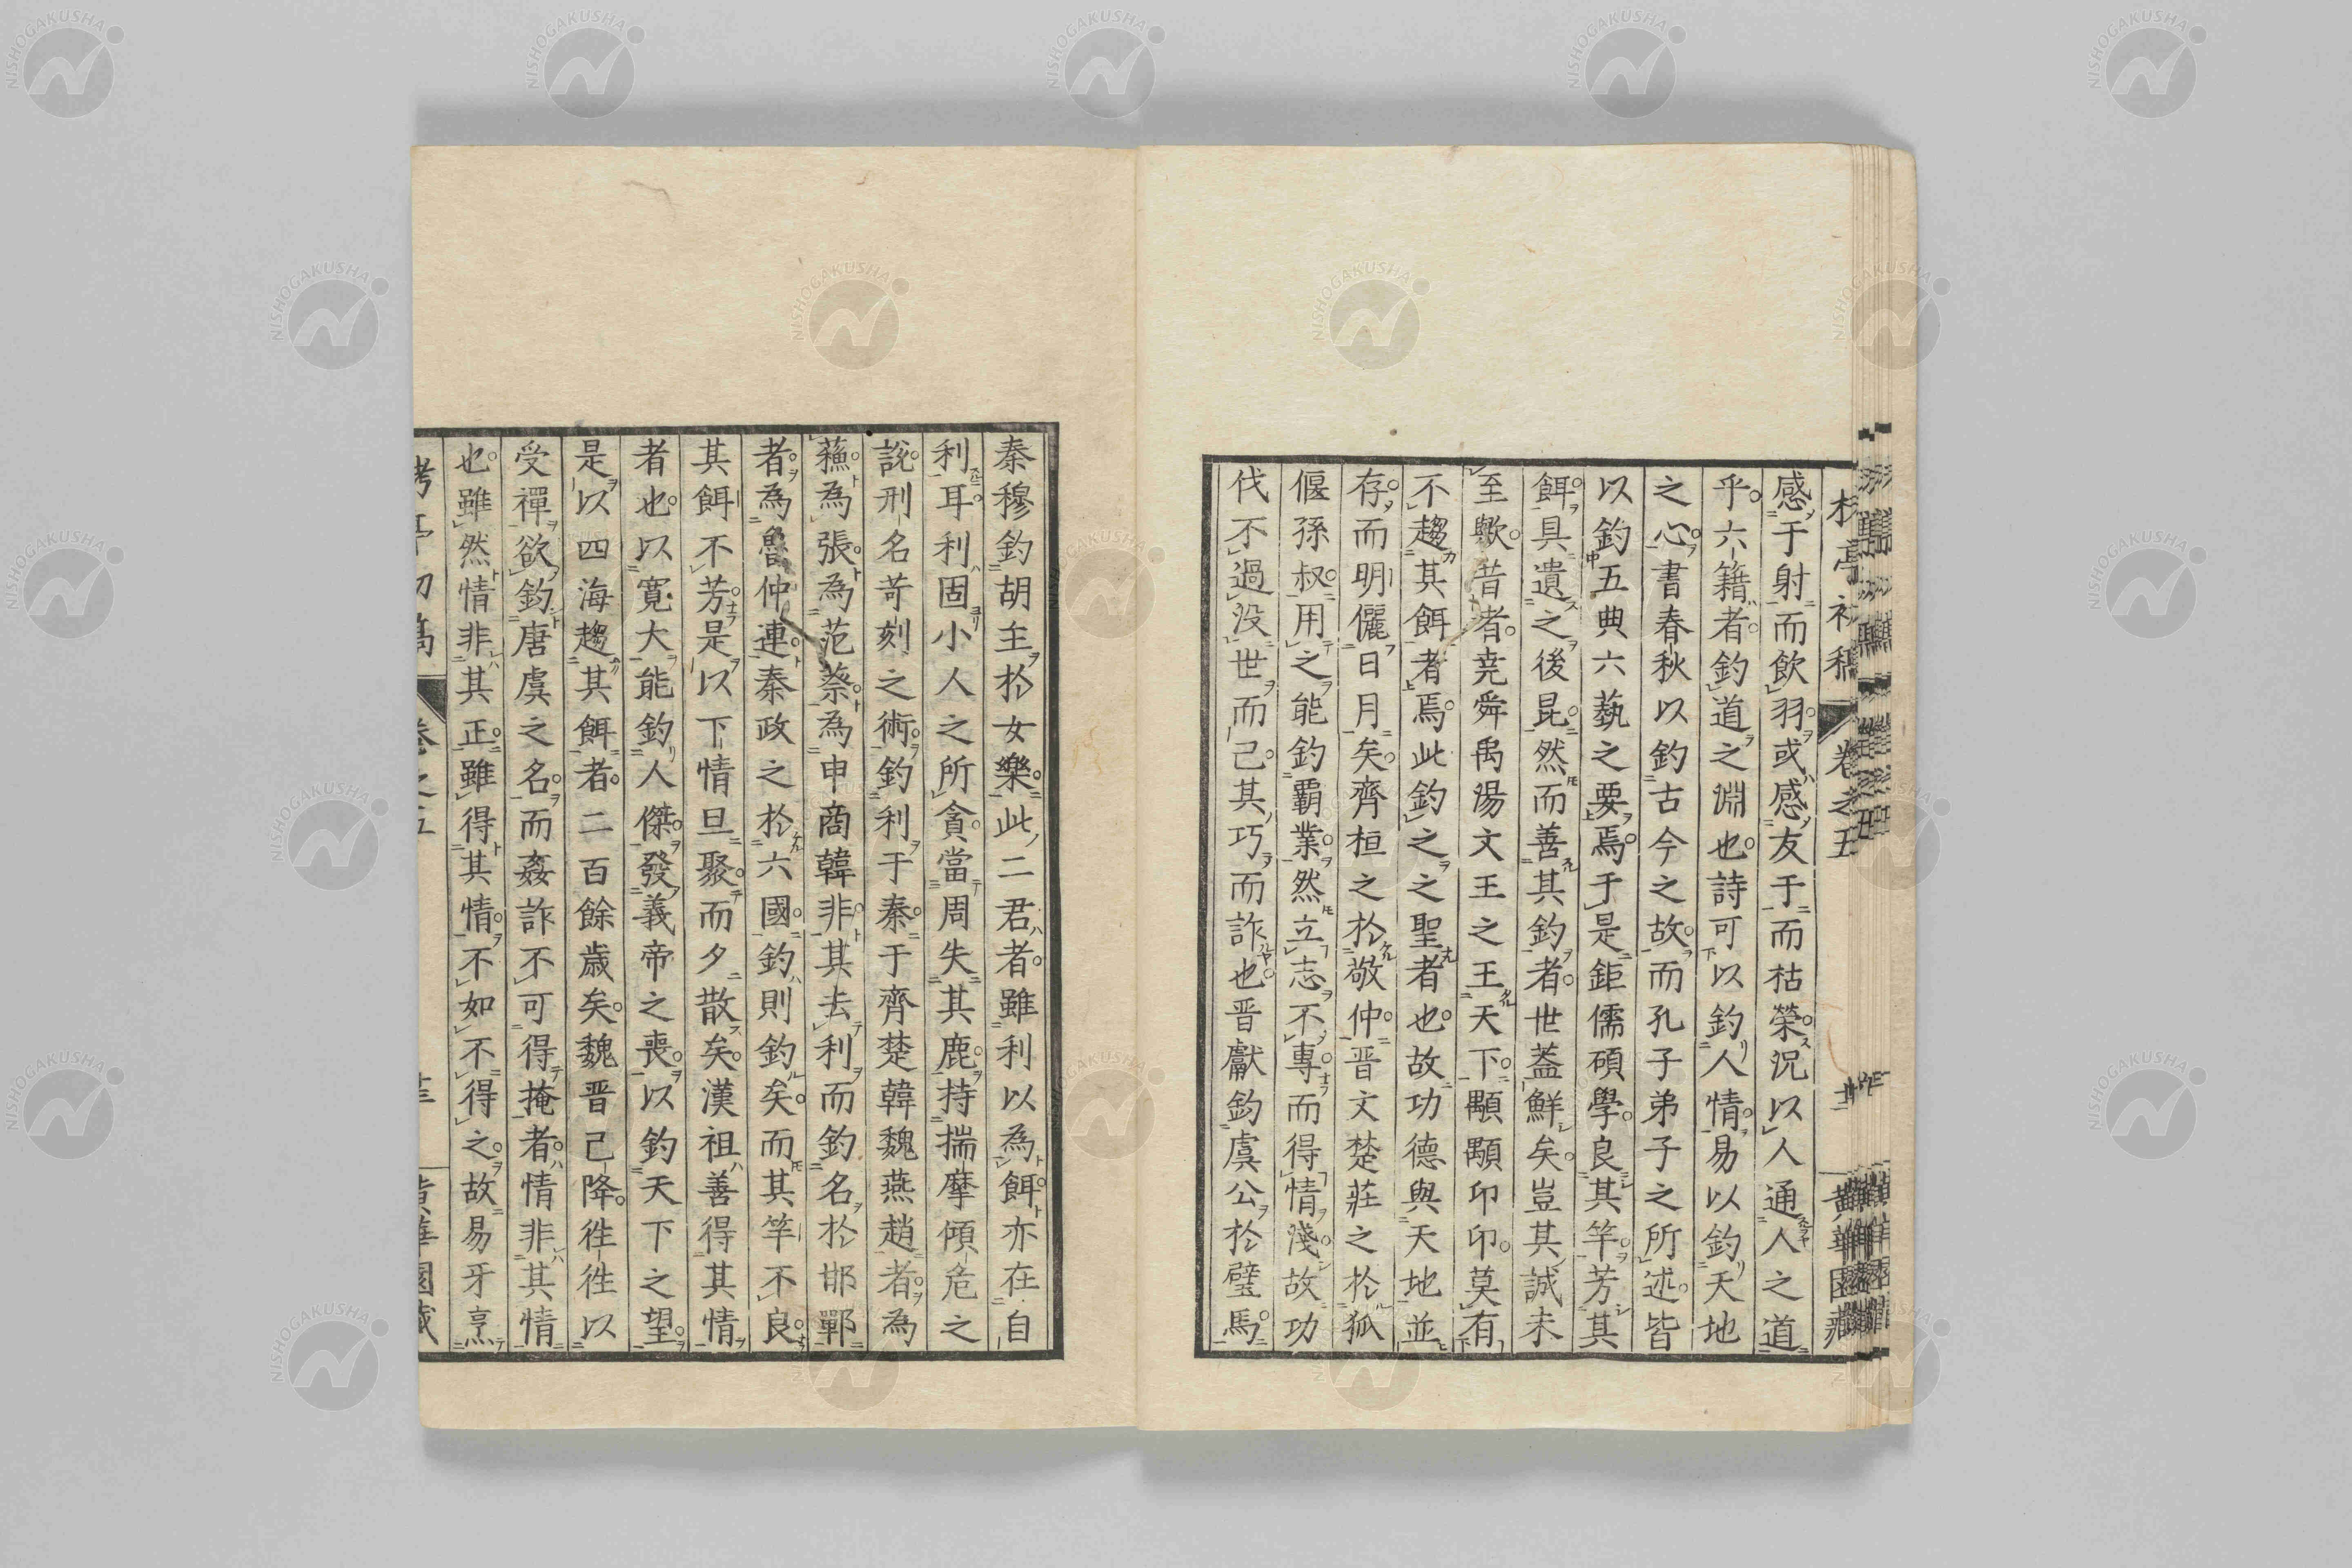 感于射而飲羽或感友于而枯榮況以人通人之道
乎六籍者釣道之淵也詩可以釣人情易以釣天地
之心書春秋以釣古今之故而孔子弟子之所述皆
以釣五典六藝之要焉于是鉅儒碩學良其竿芳其
餌具遺之後昆然而善其釣者世蓋鮮矣豈其誠未
至歟昔者堯舜禹湯文王之王天下顒顒卬卬莫有
不趨其餌者焉此釣之之聖者也故功德與天地並
存而明儷日月矣齊桓之於敬仲晋文楚莊之於狐
偃孫叔用之能釣覇業然立志不專而得情淺故功
伐不過没世而已其巧而詐也晋獻釣虞公於璧馬
秦穆釣胡主於女樂此二君者雖利以為餌亦在自
利耳利固小人之所貪當周失其鹿持揣摩傾危之
說刑名苛刻之術釣利于秦于齊楚韓魏燕趙者為
蘓為張為范蔡為申商韓非其去利而釣名於邯鄲
者為魯仲連秦政之於六國釣則釣矣而其竿不良
其餌不芳是以下情旦聚而夕散矣漢祖善得其情
者也以寛大能釣人傑發義帝之喪以釣天下之望
是以四海趨其餌者二百餘歳矣魏晋已降徃徃以
受禪欲釣唐虞之名而姦詐不可得掩者情非其情
也雖然情非其正雖得其情不如不得之故易牙烹
卷之五
NISHOGAKUSHA